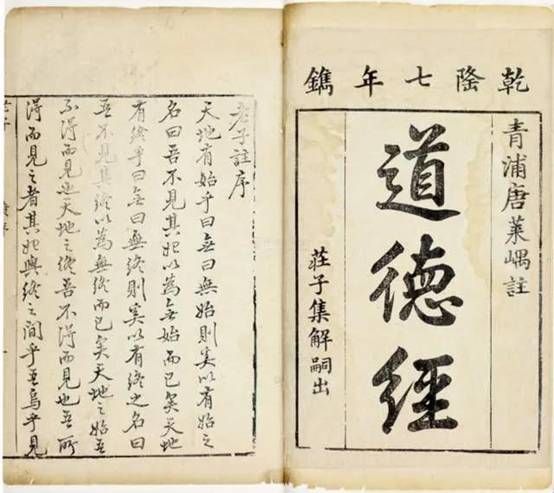 乾隆七年鐫
青浦唐萊嵎註
道德經
莊子集解嗣出
老子註序
天地有始乎曰无曰無始則奚以有始之
名曰吾不見其始以為无始而已矣天地
有終乎曰无曰無終則奚以有終之名曰
吾不見其終以為無終而已矣天地之始吾
不得而見也天地之終吾不得而見也吾所
得而見之者其始與終之間乎吾烏乎見